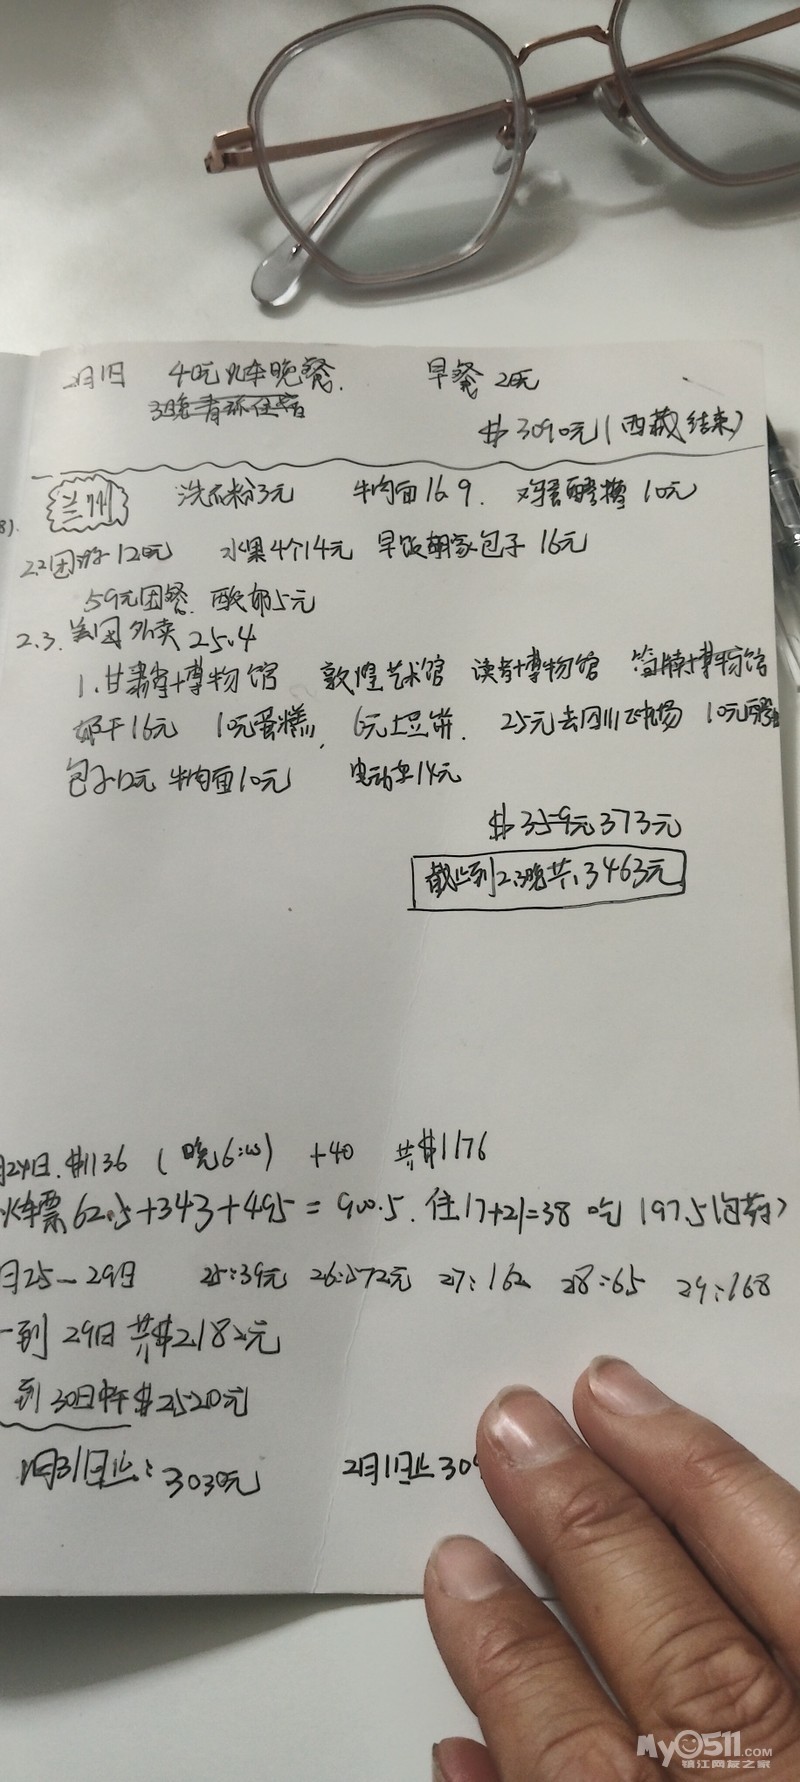 2月1日 40元火车晚餐. 早餐 20元
3晚青旅住宿
$3090元(西藏结束)
兰州 洗衣粉3元 牛肉面16.9. 鸡蛋醪糟 10元
8).
2.2团游120元 水果4个14元 早饭胡家包子 16元
59元团餐. 酸奶5元
2.3. 美团外卖 25.4
1.甘肃省博物馆 敦煌艺术馆 读者博物馆 简牍博物馆
奶干16元 10元蛋糕, 6元土豆饼. 25元去中川飞机场 10元
包子12元 牛肉面10元 电动车14元
$359元373元
截止到2.3晚共:3463元
月24日.$1136 (晚6:00) +40 共$1176
火车票62.5+343+495=900.5. 住17+21=38 吃 197.5(包药)
月25-29日 25:39元 26:572元 27:162 28:65 29:168
一到 29日共$2182元
到30日中午$2520元
1月31日止:3030元 2月1日止309
MY0511.COM
镇江网友之家